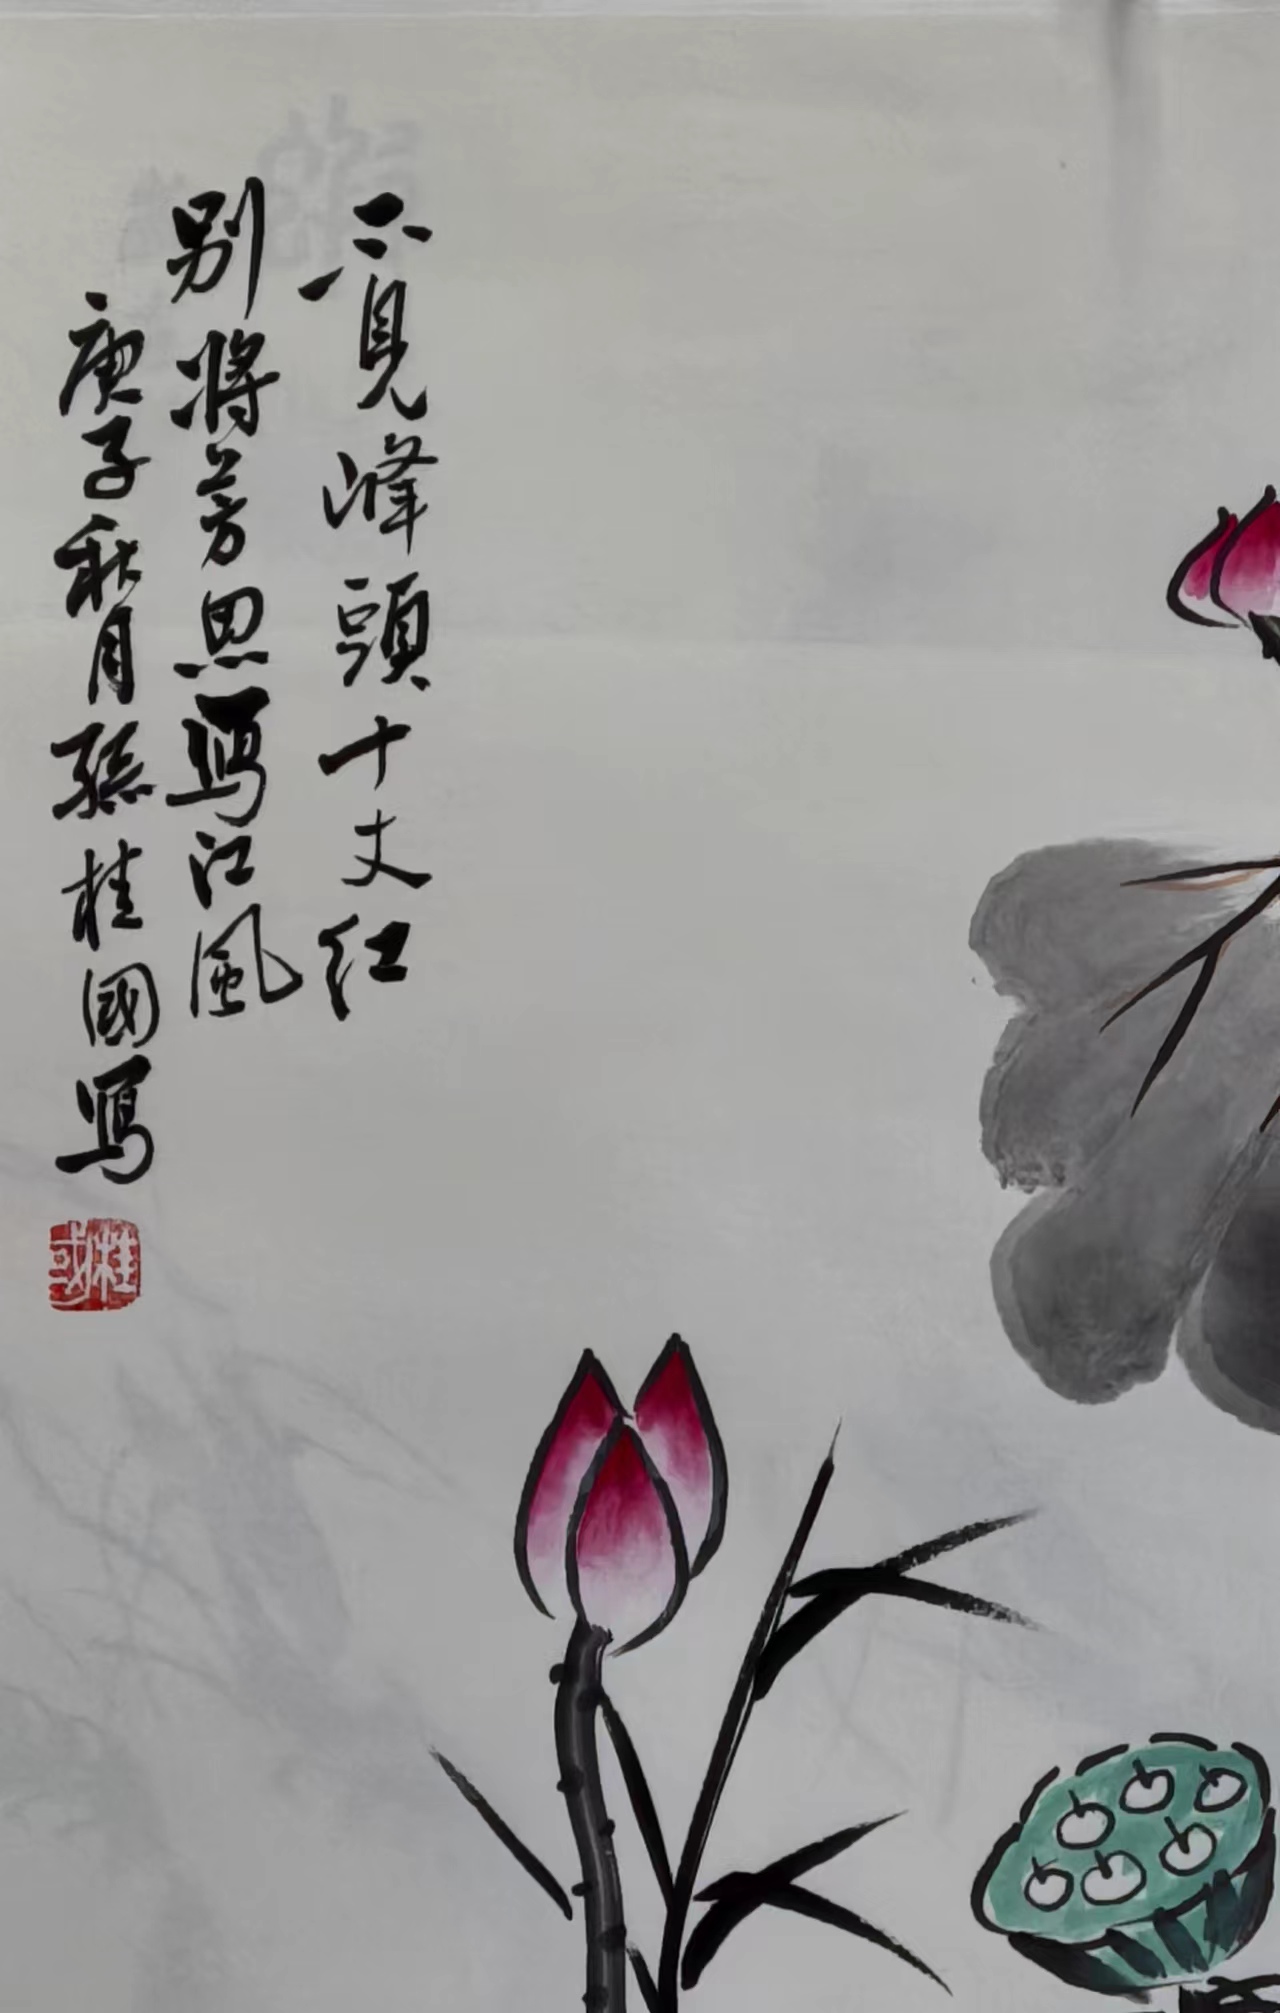 不見峰頭十丈紅
別將芳思寫江風
庚子秋月孫桂國寫
桂國